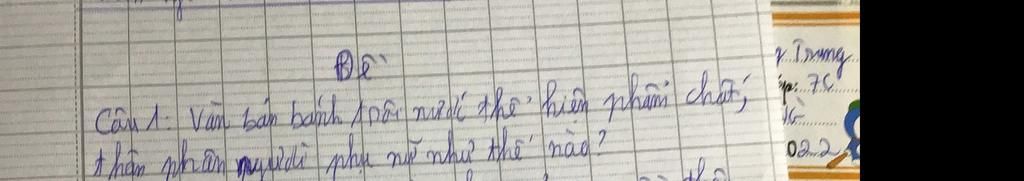 Đề
Câu 1: Văn bản bánh trôi nước thể hiện phẩm chất,
thân phận người phụ nữ như thế nào?
Trung
7C
022